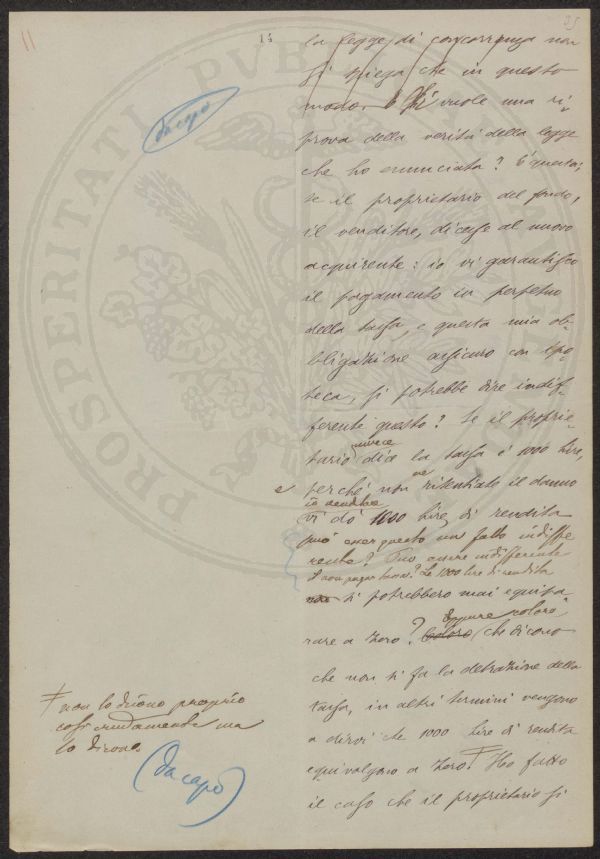 11
14
25
da capo
la legge di concorrenza non
si spiega che in questo
modo. E si vuole una ri-
prova della verità della legge
che ho enunciata? È questa;
se il proprietario del fondo,
il venditore, dicesse al nuovo
acquirente: io vi garantisco
il pagamento in perpetuo
della tassa, e questa mia ob-
bligazione assicuro con ipo-
teca, si potrebbe dire indif-
ferente questo? Se il proprie-
invece
tario dice la tassa è 1000 lire,
e perché non ne risentiate il danno
in vendita
vi do 1000 lire di rendita
può esser questo un fatto indiffe
rente? Può essere indifferente
il non pagar tassa? Le 1000 lire di rendita
non si potrebbero mai equipa-
Eppure coloro
rare a zero? Coloro che dicono
che non si fa la detrazione della
tassa, in altri termini vengono
a dirvi che 1000 lire di rendita
equivalgono a zero! Ho fatto
il caso che il proprietario si
non lo dicono proprio
così crudamente ma
lo dicono
(da capo)
PROSPERITATI PVBLI